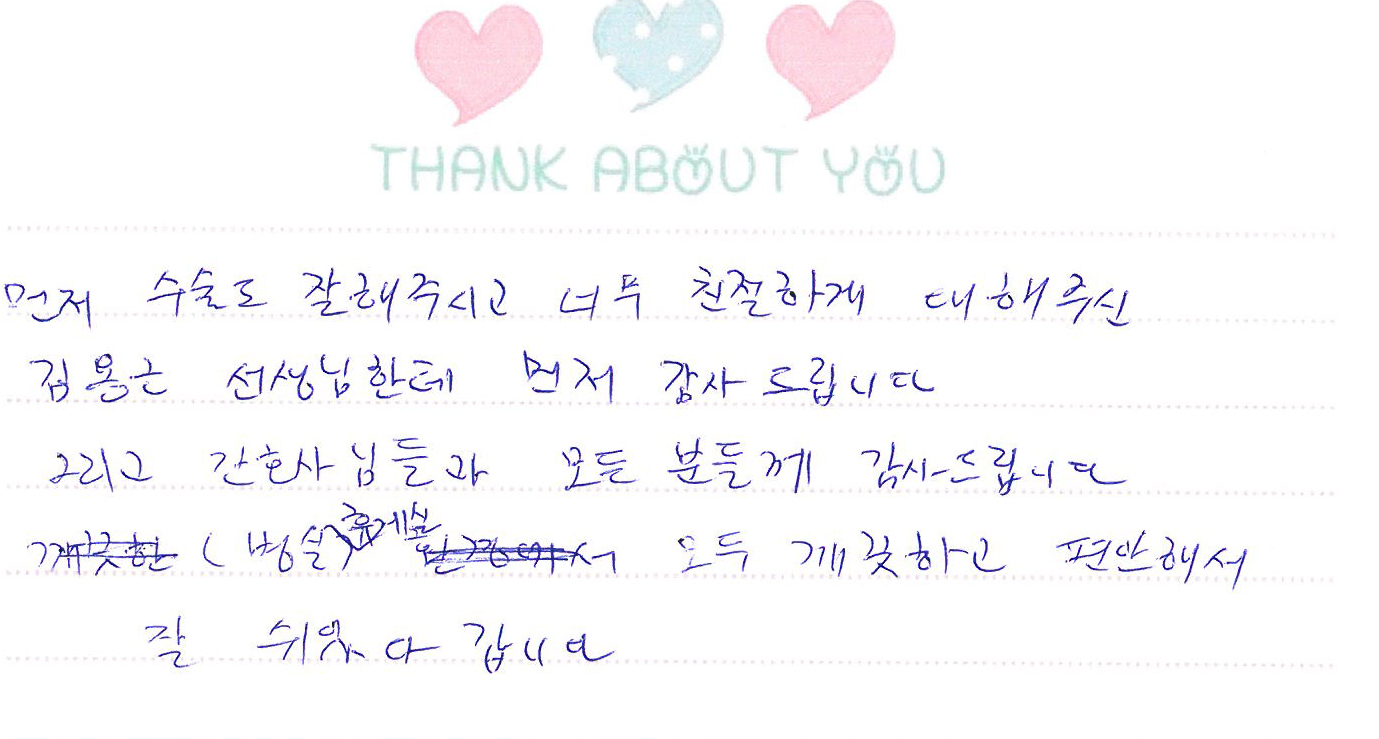 THANK ABOUT YOU
먼저 수술도 잘해주시고 너무 친절하게 대해주신
김용근 선생님한테 먼저 감사드립니다
그리고 간호사님들과 모든 분들께 감사드립니다
깨끗한 (병실) 휴게실 서 모두 깨끗하고 편안해서
잘 쉬었다 갑니다